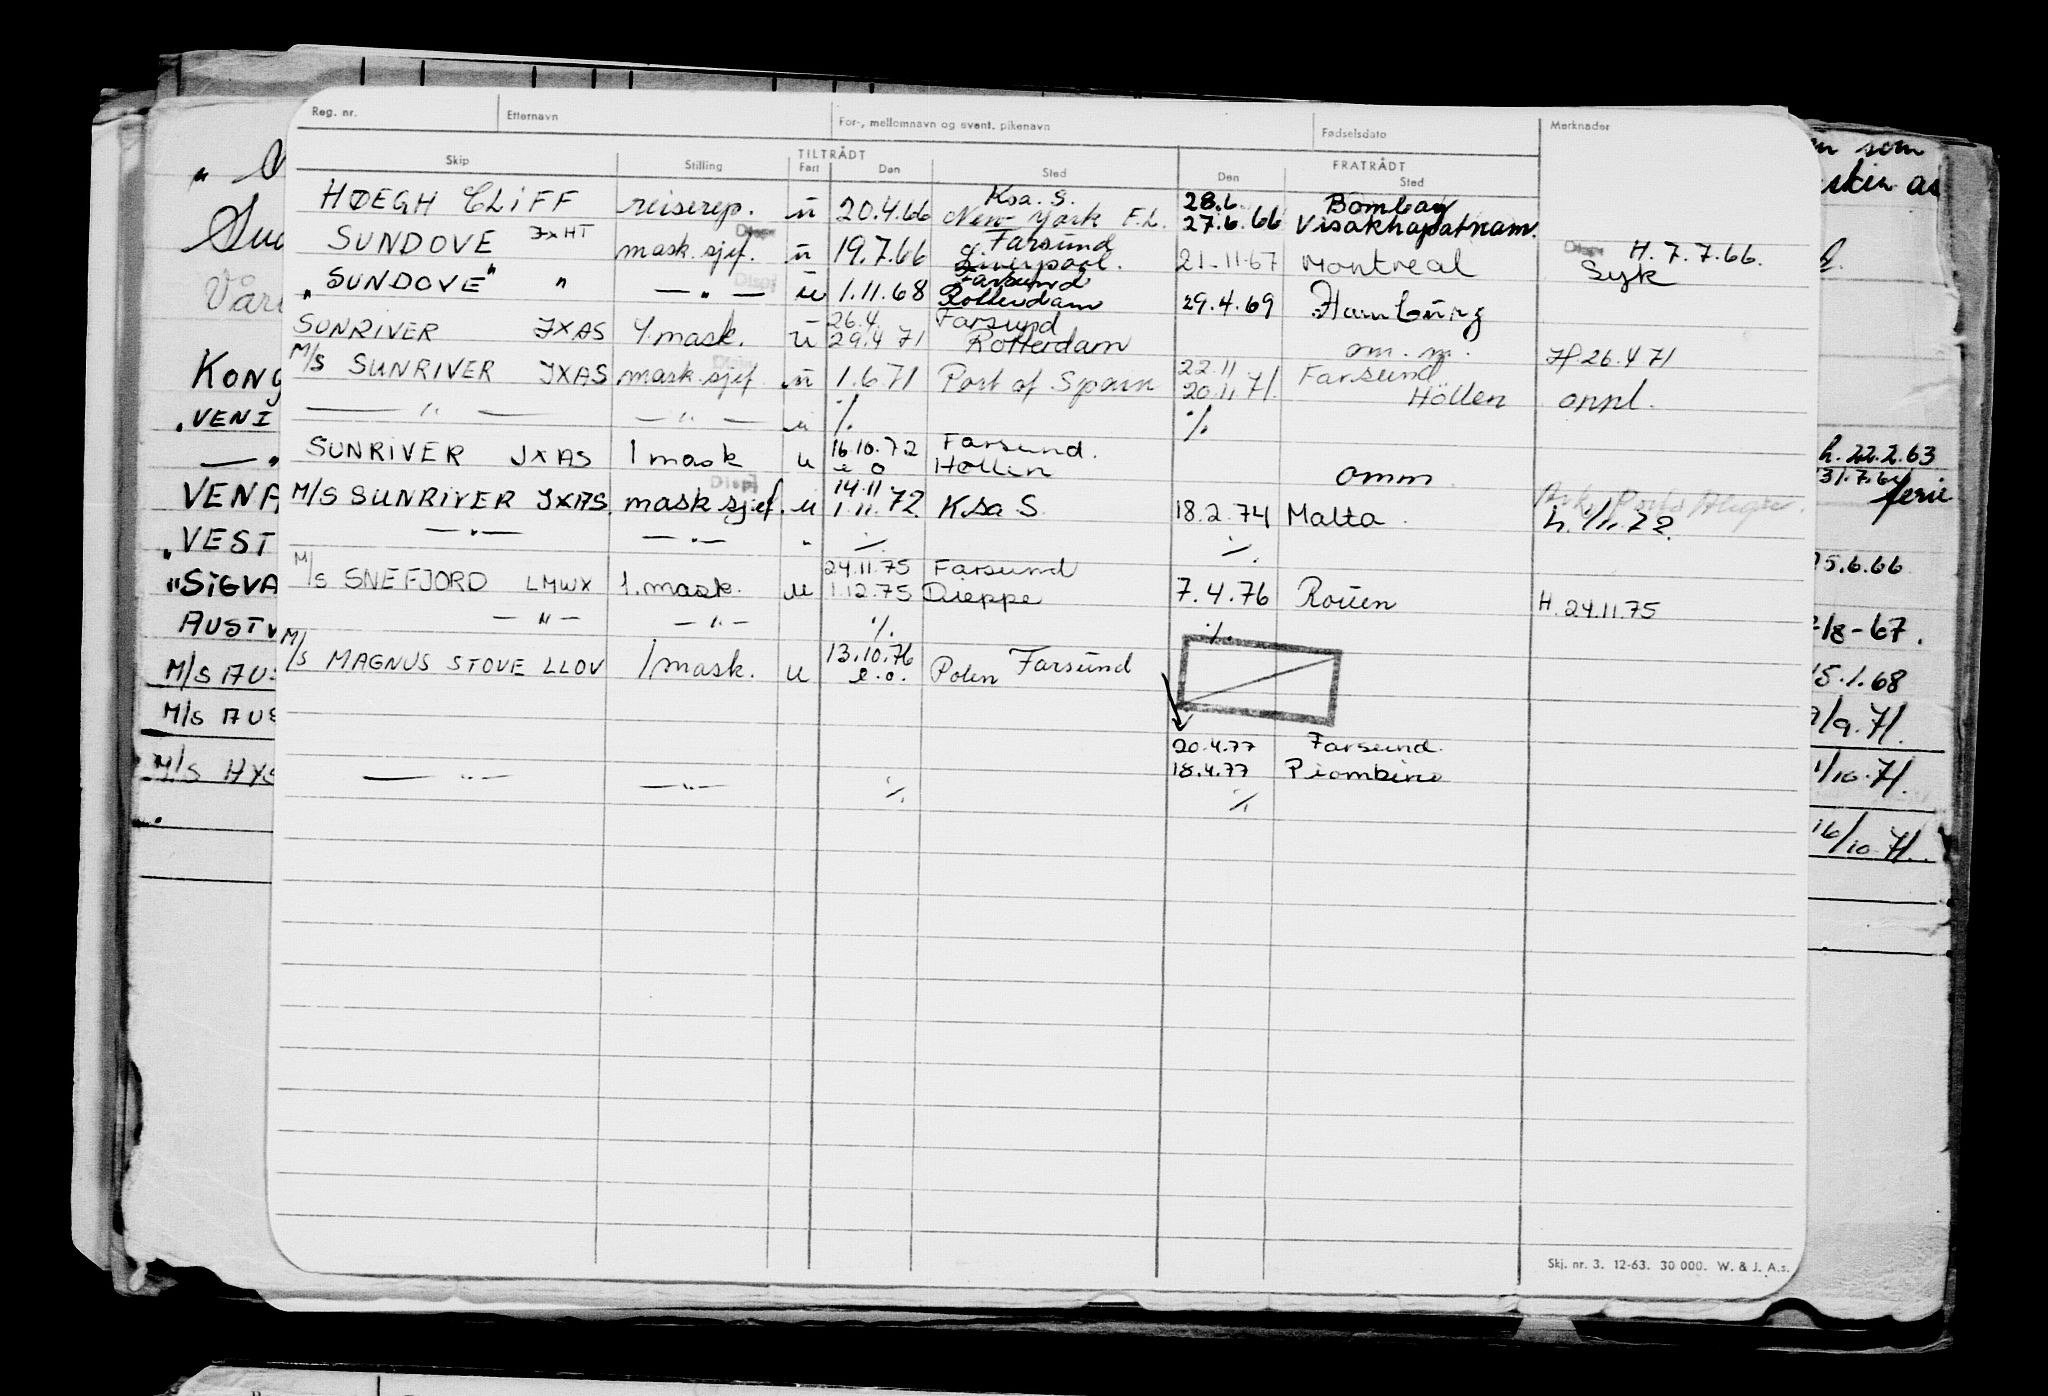 Reg. nr. Etternavn For-, mellomnavn og event. pikenavn Fødselsdato Merknader
TILTRÅDT FRATRÅDT
Skip Stilling Fart Den Sted Den Sted
Ksa. S. 28.6. Bombay
HØEGH CLIFF reiserep. u 20.4.66 New York F.L. 27.6.66 Visakhapatnam.
Disp Farsund Disp H. 7.7.66.
SUNDOVE JXHT mask.sjef. u 19.7.66 Liverpool. 21-11-67 Montreal Syk
Disp Farsund
"SUNDOVE" " — " — u 1.11.68 Rotterdam 29.4.69 Hamburg
26.4. Farsund
SUNRIVER JXAS 1 mask. u 29.4 71 Rotterdam om. m. H 26.4 71
Disp 22.11 Farsund
M/S SUNRIVER JXAS mask.sjef. u 1.6.71 Port of Spain 20.11 71. Höllen annl.
— " — — " — u ./. ./.
16.10.72 Farsund.
SUNRIVER JXAS 1 mask u e o Höllen omm.
Disp 14.11.
M/S SUNRIVER JXAS. mask sjef. u 1.11.72. Ksa S. 18.2.74 Malta. h. 1/11.72.
— " — — " — " ./. ./.
24.11.75 Farsund
M/S SNEFJORD LMWX 1. mask. u 1.12.75 Dieppe 7.4.76 Rouen H. 24.11.75
— " — — " — ./. ./.
13.10.76
M/S MAGNUS STOVE LLOV 1 mask. u e.o. Polen Farsund
20.4.77 Farsund.
18.4.77 Piombino
— " — — " — ./. ./.
Skj. nr. 3. 12-63. 30 000. W. & J. A.s.
Vår
KONG
"VENI
VENA
"VEST
"SIGVA
AUSTV
M/S AUS
M/S AUS
M/S HYS
som
h. 22.2.63
31.7.64 ferie
5.6.66
/8-67.
15.1.68
9/9.71.
1/10.71.
16/10.71.